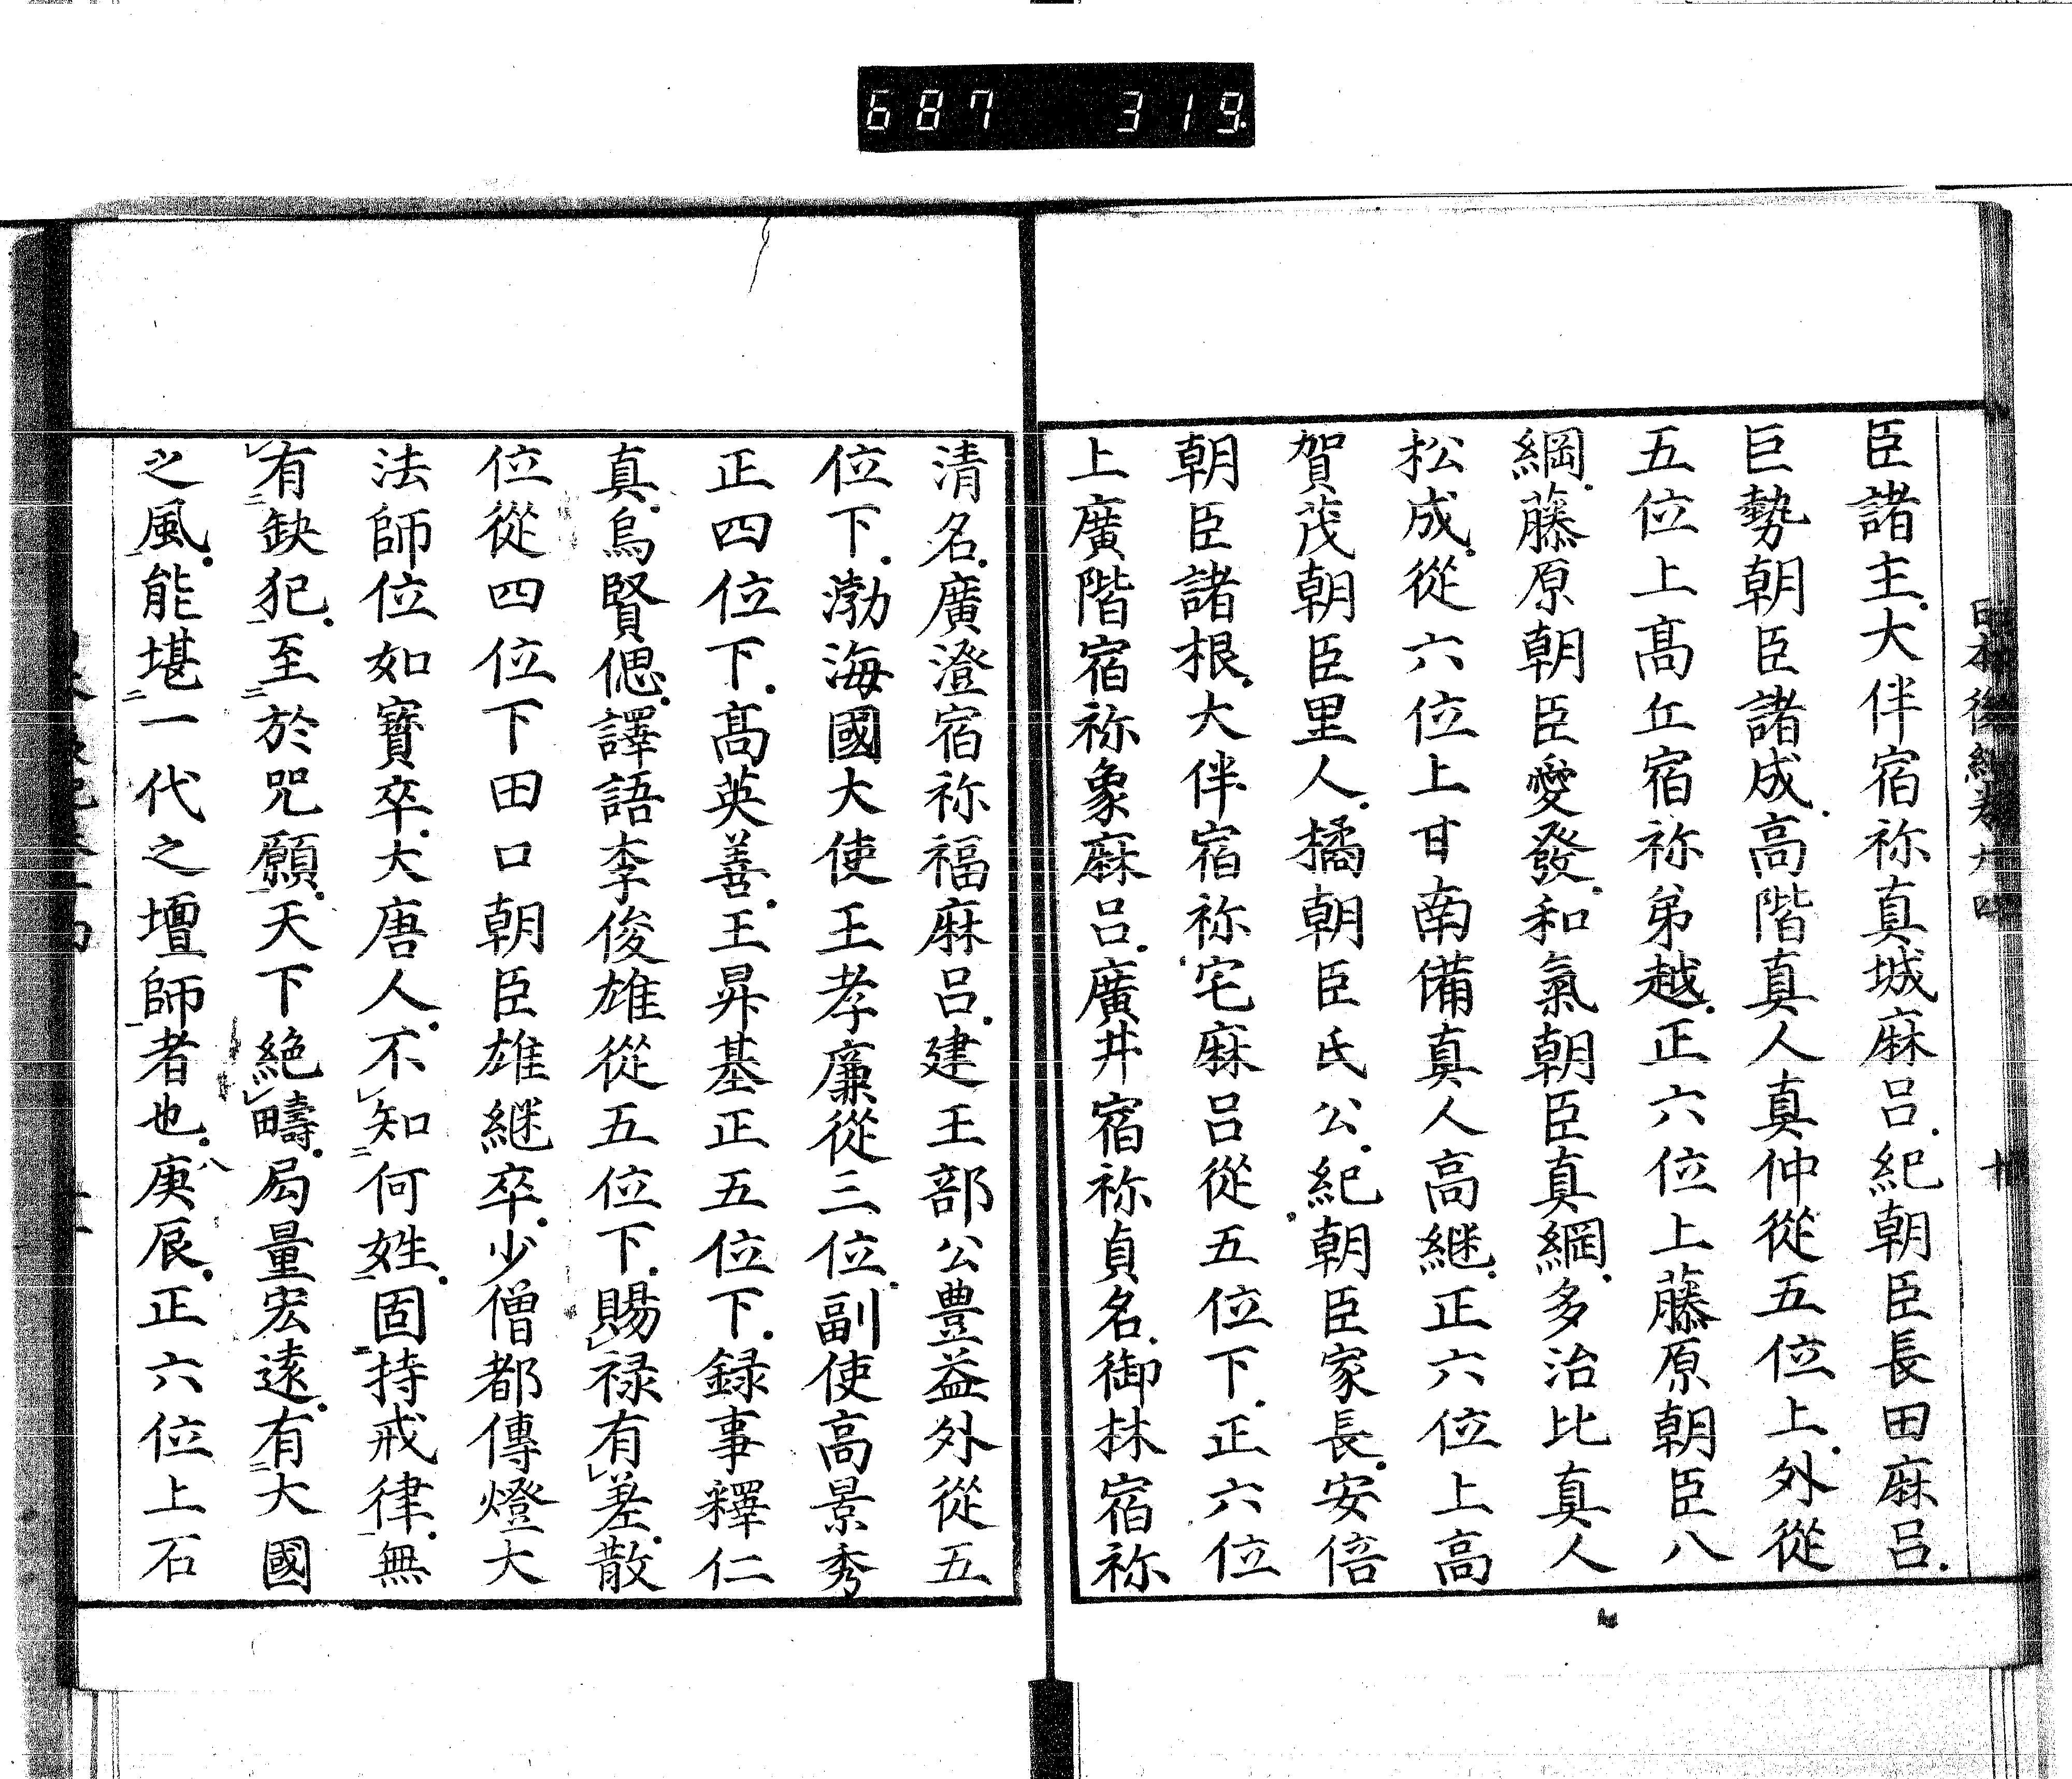 687 319
臣諸主大伴宿祢真城麻呂紀朝臣長田麻呂
巨勢朝臣諸成高階真人真仲從五位上外從
五位上髙丘宿祢弟越正六位上藤原朝臣八
綱藤原朝臣愛發和氣朝臣真綱多治比真人
松成從六位上甘南備真人高継正六位上高
賀茂朝臣里人橘朝臣氏公紀朝臣家長安倍
朝臣諸根大伴宿祢宅麻呂從五位下正六位
上廣階宿祢象麻呂廣井宿祢貞名御林宿祢
清名廣澄宿祢福麻呂建王部公豊益外從五
位下渤海國大使王孝廉從三位副使高景秀
正四位下髙英善王昇基正五位下録事釋仁
真烏賢偲譯語李俊雄從五位下賜禄有差散
位從四位下田口朝臣雄継卒少僧都傳燈大
法師位如寶卒大唐人不知何姓固持戒律無
有缺犯至於咒願天下絶疇局量宏遠有大國
之風能堪一代之壇師者也庚辰正六位上石